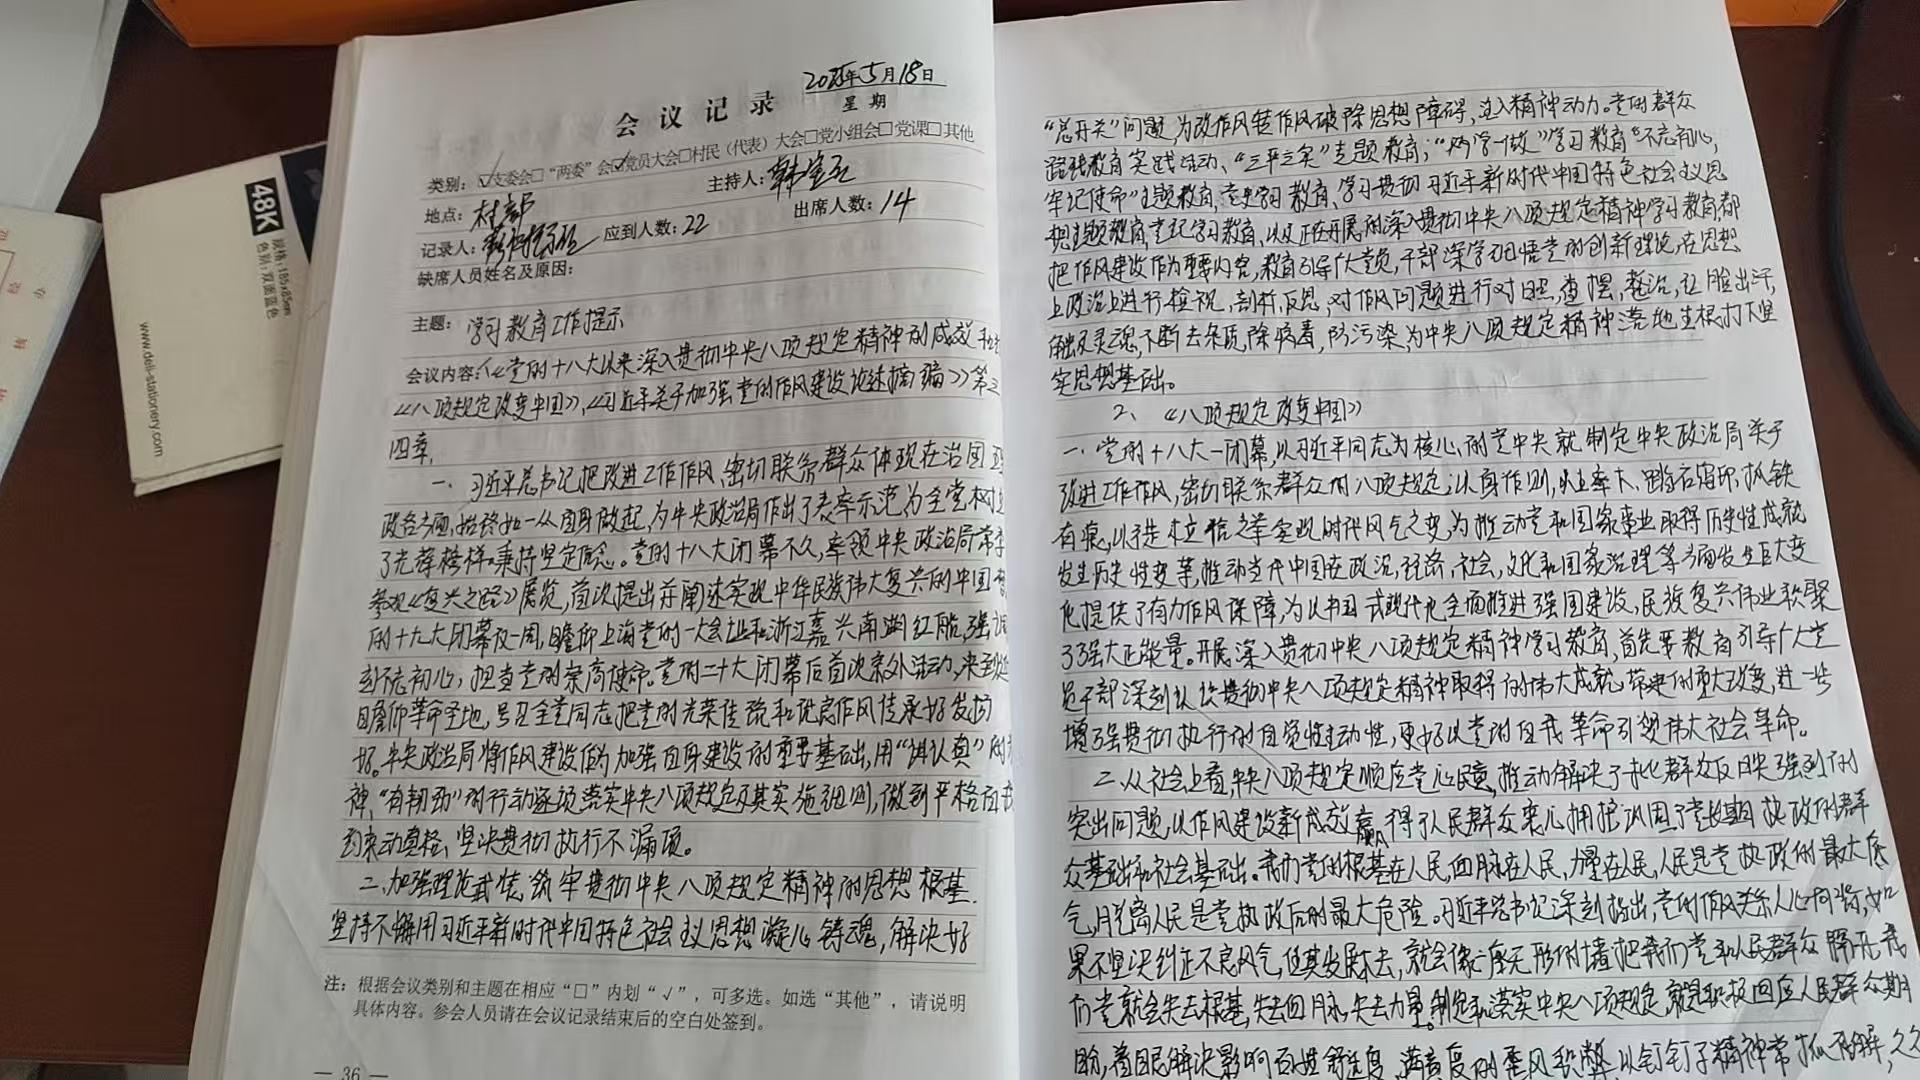 会议记录
2025年5月18日
星期
类别：☑支委会□“两委”会☑党员大会□村民（代表）大会□党小组会□党课□其他
地点：村部
主持人：韩宝
记录人：
应到人数：22
出席人数：14
缺席人员姓名及原因：
主题：学习教育工作提示
会议内容：《党的十八大以来深入贯彻中央八项规定精神的成效和
《八项规定改变中国》，《习近平关于加强党的作风建设论述摘编》第三
四章，
一、习近平总书记把改进工作作风、密切联系群众体现在治国理
政各方面，始终如一从自身做起，为中央政治局作出了表率示范，为全党树立
了光荣榜样，秉持坚定信念。党的十八大闭幕不久，率领中央政治局常委
参观《复兴之路》展览，首次提出并阐述实现中华民族伟大复兴的中国梦
的十九大闭幕仅一周，瞻仰上海党的一大会址和浙江嘉兴南湖红船，强调
到不忘初心，担当党的崇高使命。党的二十大闭幕后首次京外活动，来到延
瞻仰革命圣地，号召全党同志把党的光荣传统和优良作风传承好发扬
好。中央政治局将作风建设作为加强自身建设的重要基础，用“讲认真”的精
神、“有韧劲”的行动逐项落实中央八项规定及其实施细则，做到严格自我
约束动真格、坚决贯彻执行不漏项。
二、加强理论武装，筑牢贯彻中央八项规定精神的思想根基。
坚持不懈用习近平新时代中国特色社会主义思想凝心铸魂，解决好
注：根据会议类别和主题在相应“□”内划“√”，可多选。如选“其他”，请说明
具体内容。参会人员请在会议记录结束后的空白处签到。
— 36 —
“总开关”问题，为改作风转作风破除思想障碍，注入精神动力。党的群众
路线教育实践活动、“三严三实”专题教育；“两学一做”学习教育“不忘初心，
牢记使命”主题教育、党史学习教育、学习贯彻习近平新时代中国特色社会主义思
想主题教育，党纪学习教育，以及正在开展的深入贯彻中央八项规定精神学习教育，都
把作风建设作为重要内容，教育引导广大党员，干部深学习悟党的创新理论，在思想
上政治上进行检视，剖析，反思，对作风问题进行对照，查摆，整治，红脸出汗，
触及灵魂，不断去杂质，除病毒，防污染，为中央八项规定精神落地生根打下坚
实思想基础。
2、《八项规定改变中国》
一、党的十八大一闭幕，以习近平同志为核心的党中央就制定中央政治局关于
改进工作作风，密切联系群众的八项规定；以身作则，以上率下、踏石留印，抓铁
有痕，以徙木立信之举实现时代风气之变，为推动党和国家事业取得历史性成就
发生历史性变革，推动当代中国在政治，经济，社会，文化和国家治理等方面发生巨大变
化提供了有力作风保障，为以中国式现代化全面推进强国建设，民族复兴伟业积聚
了强大正能量。开展深入贯彻中央八项规定精神学习教育，首先要教育引导广大党
员干部深刻认识贯彻中央八项规定精神取得的伟大成就，带来的重大改变，进一步
增强贯彻执行的自觉性主动性，更好以党的自我革命引领伟大社会革命。
二、从社会上看，中央八项规定顺应党心民意，推动解决了一批群众反映强烈的
突出问题，以作风建设新成效赢得了人民群众衷心拥护，巩固了党长期执政的群
众基础和社会基础。我们党的根基在人民，血脉在人民，力量在人民，人民是党执政的最大底
气，脱离人民是党执政后的最大危险。习近平总书记深刻指出，党的作风关系人心向背，如
果不坚决纠正不良风气，任其发展下去，就会像一座无形的墙把我们党和人民群众隔开，我
们党就会失去根基，失去血脉，失去力量。制定和落实中央八项规定，就是积极回应人民群众期
盼，着眼解决影响百姓舒适度，满意度的歪风积弊，以钉钉子精神常抓不懈，久久
48K
规格：185x85mm
色别：双面蓝色
www.deli-stationery.com
经办